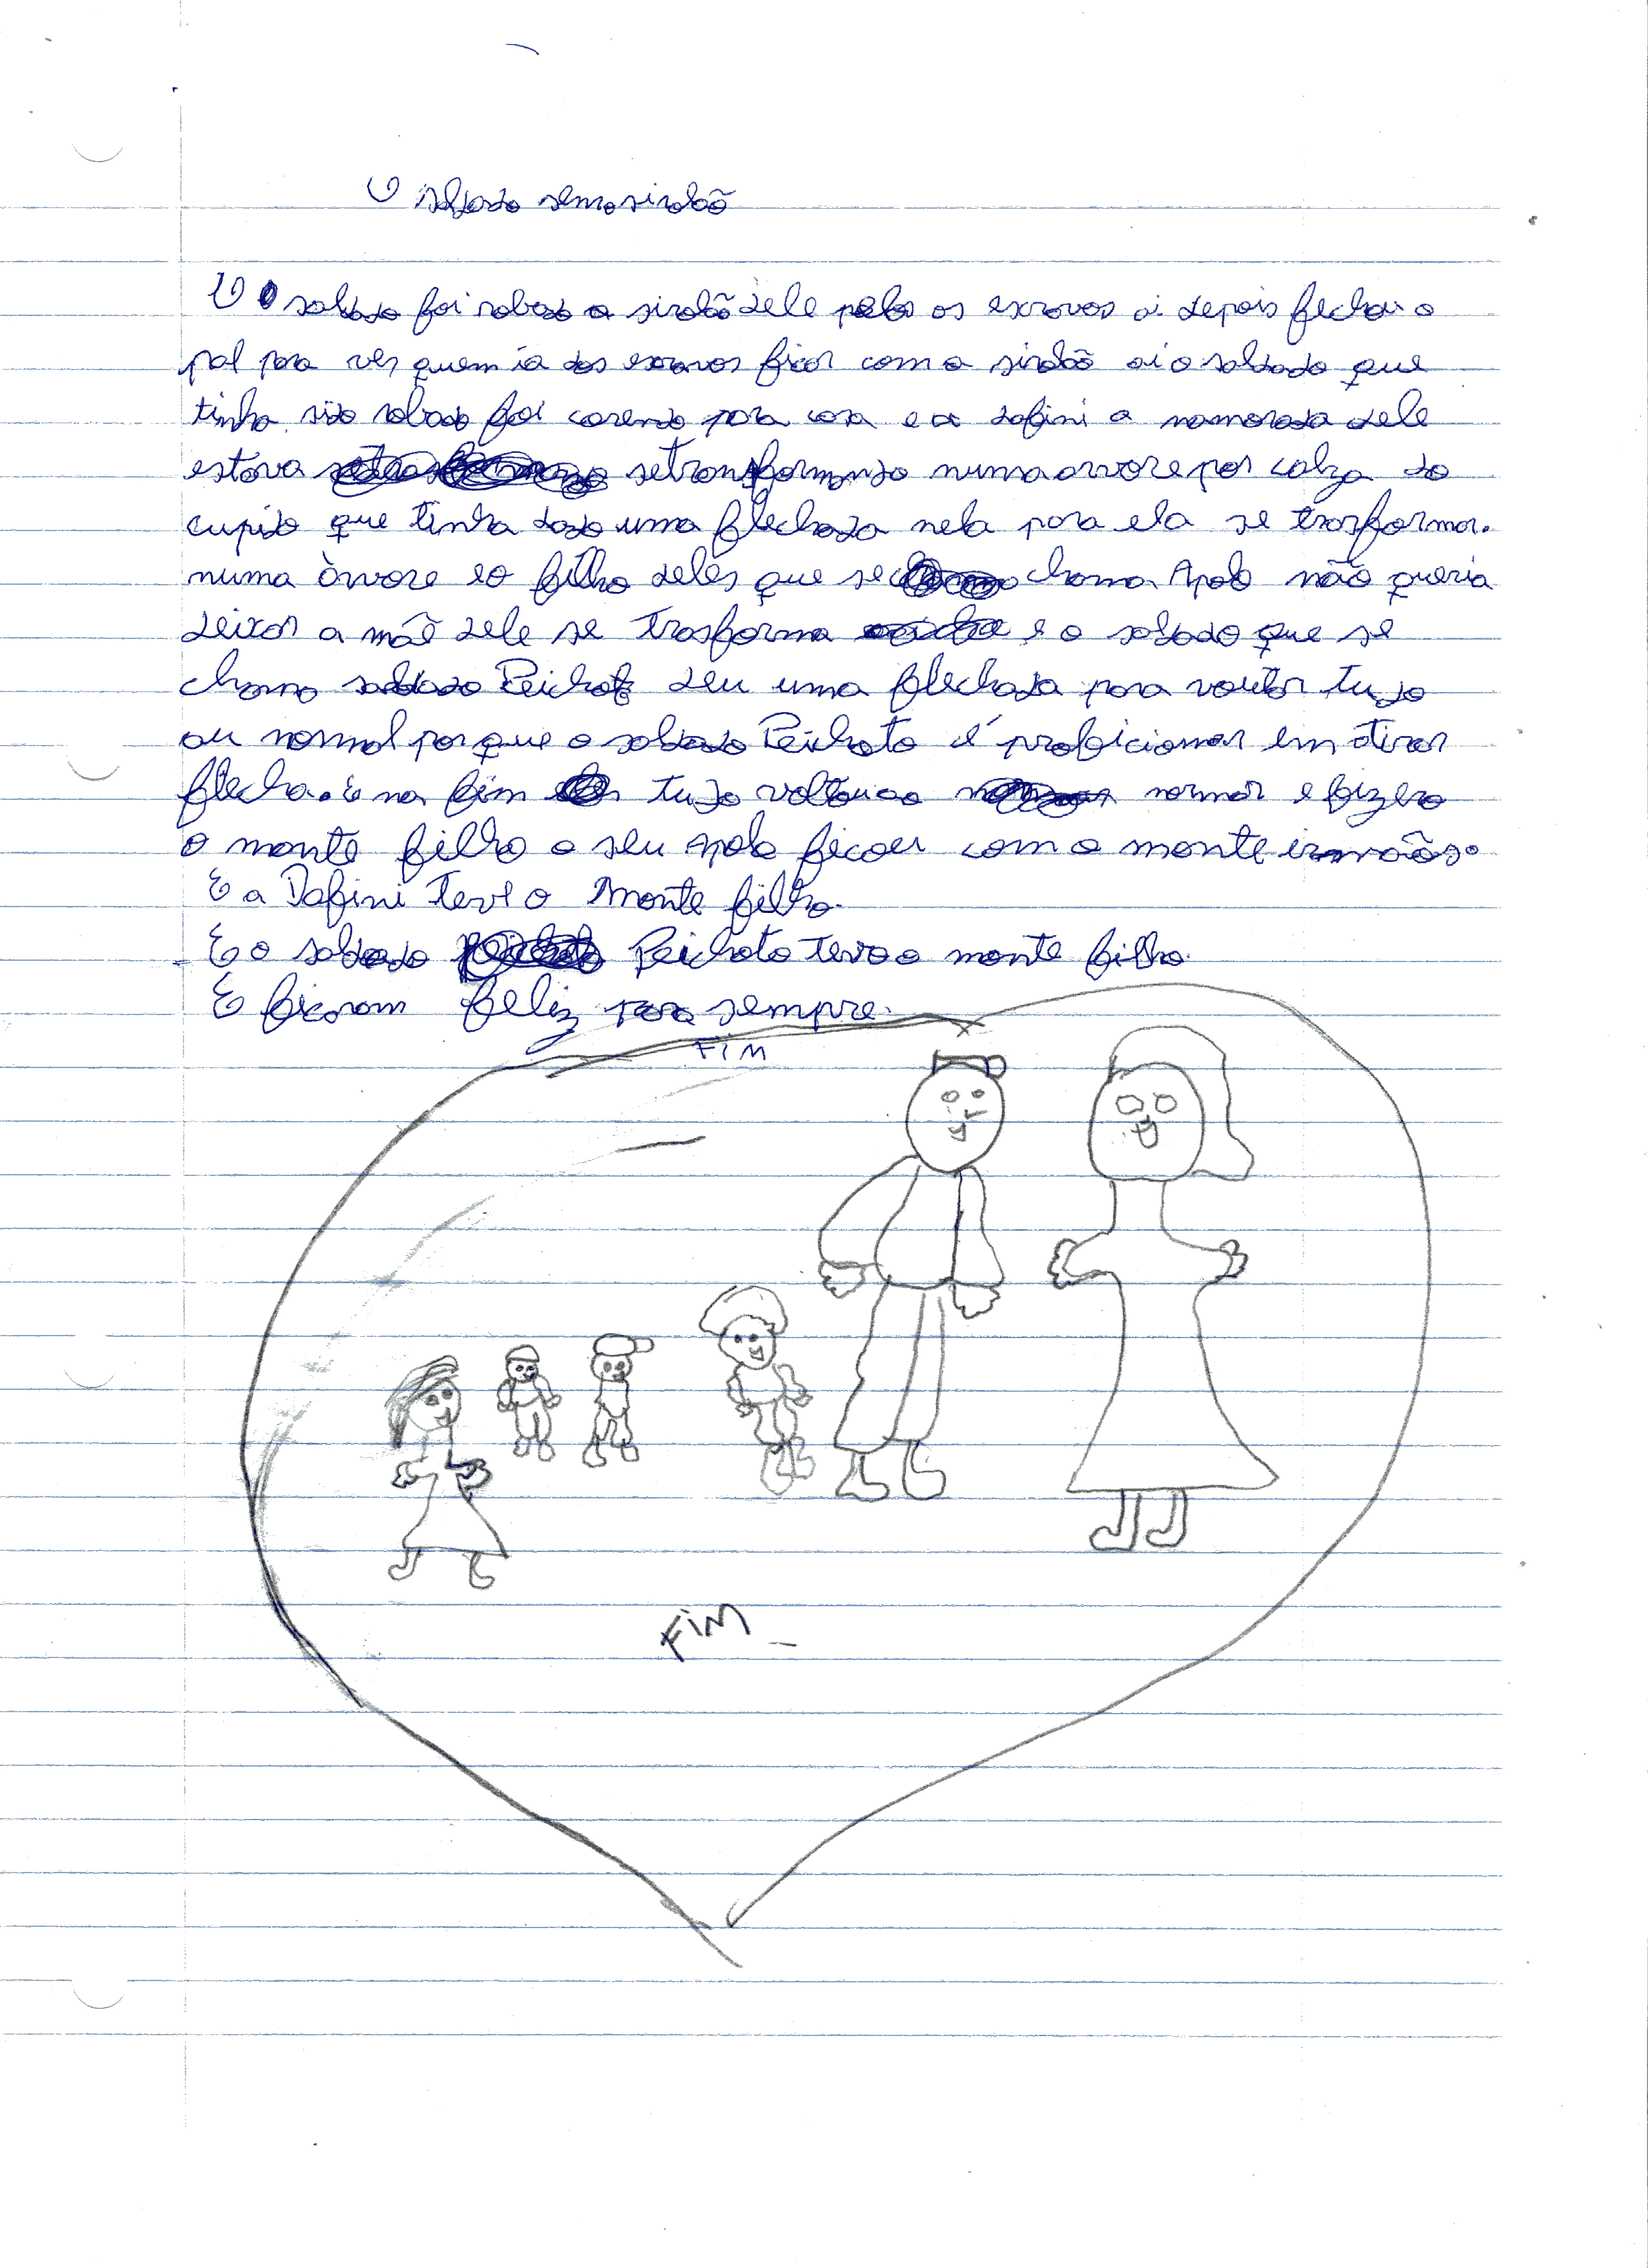 O soldado semo sirdão
O soldado foi robado a sirdão dele pelos os escravos ai depois fechou o
pal para ver quem ia dos escravos ficar com o sirdão ai o soldado que
tinha sido robado foi corendo para casa e a dafini a namorada dele
estava setransformando numa arvore por calza do
cupido que tinha dado uma flechada nela para ela se trasformar.
numa àrvore eo filho deles que se chama Apolo não queria
deixar a mãe dele se trasforma e o soldado que se
chama soldado Peichoto deu uma flechada para voutar tudo
au normal porque o soldado Peichoto é proficionar em atirar
flecha. E no fim tudo voltou ao normar e fizero
o monte filho o seu Apolo ficou com o monte irmãos.
E a Dafini teve o monte filho.
E o soldado Peichoto teve o monte filho.
E ficaram feliz para sempre.
FIM
FIM